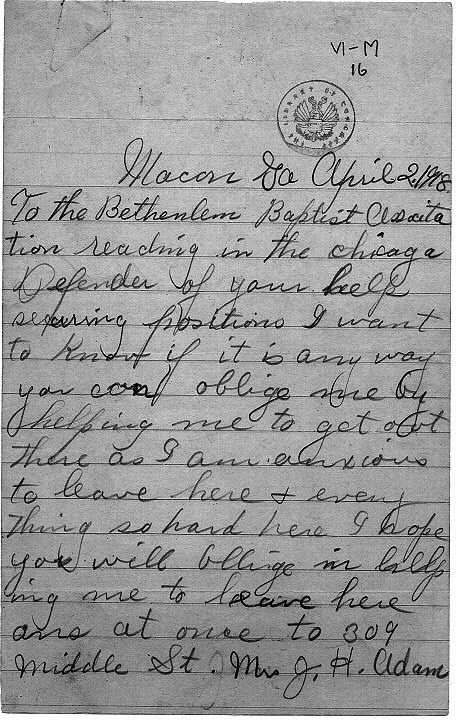 VI-M
16
THE LIBRARY OF CONGRESS
Macon Ga April 2, 1918
To the Bethenlem Baptist Associta
tion reading in the chicaga
Defender of your help
securing positions I want
to know if it is any way
you can oblige me by
helping me to get out
there as I am anxious
to leave here & every
thing so hard here I hope
you will oblige in help
ing me to leave here
ans at once to 309
Middle St. Mrs J. H. Adam